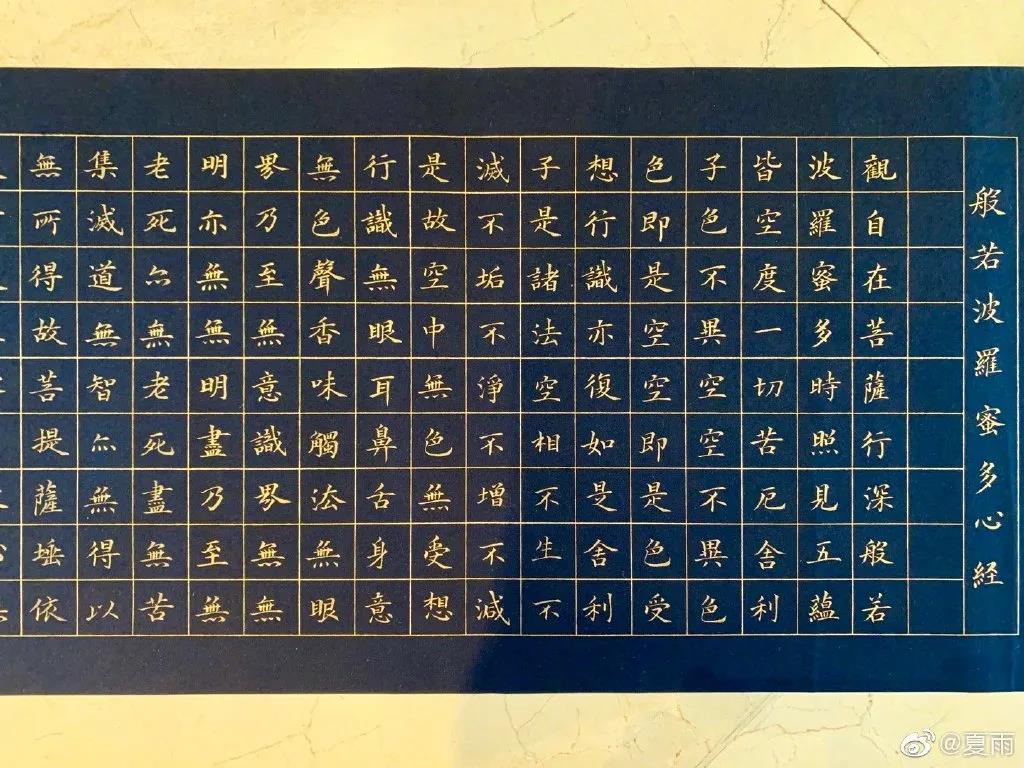 般若波羅蜜多心経
觀自在菩薩行深般若
波羅蜜多時照見五蘊
皆空度一切苦厄舍利
子色不異空空不異色
色即是空空即是色受
想行識亦復如是舍利
子是諸法空相不生不
滅不垢不淨不增不減
是故空中無色無受想
行識無眼耳鼻舌身意
無色聲香味觸法無眼
界乃至無意識界無無
明亦無無明盡乃至無
老死亦無老死盡無苦
集滅道無智亦無得以
無所得故菩提薩埵依
@夏雨